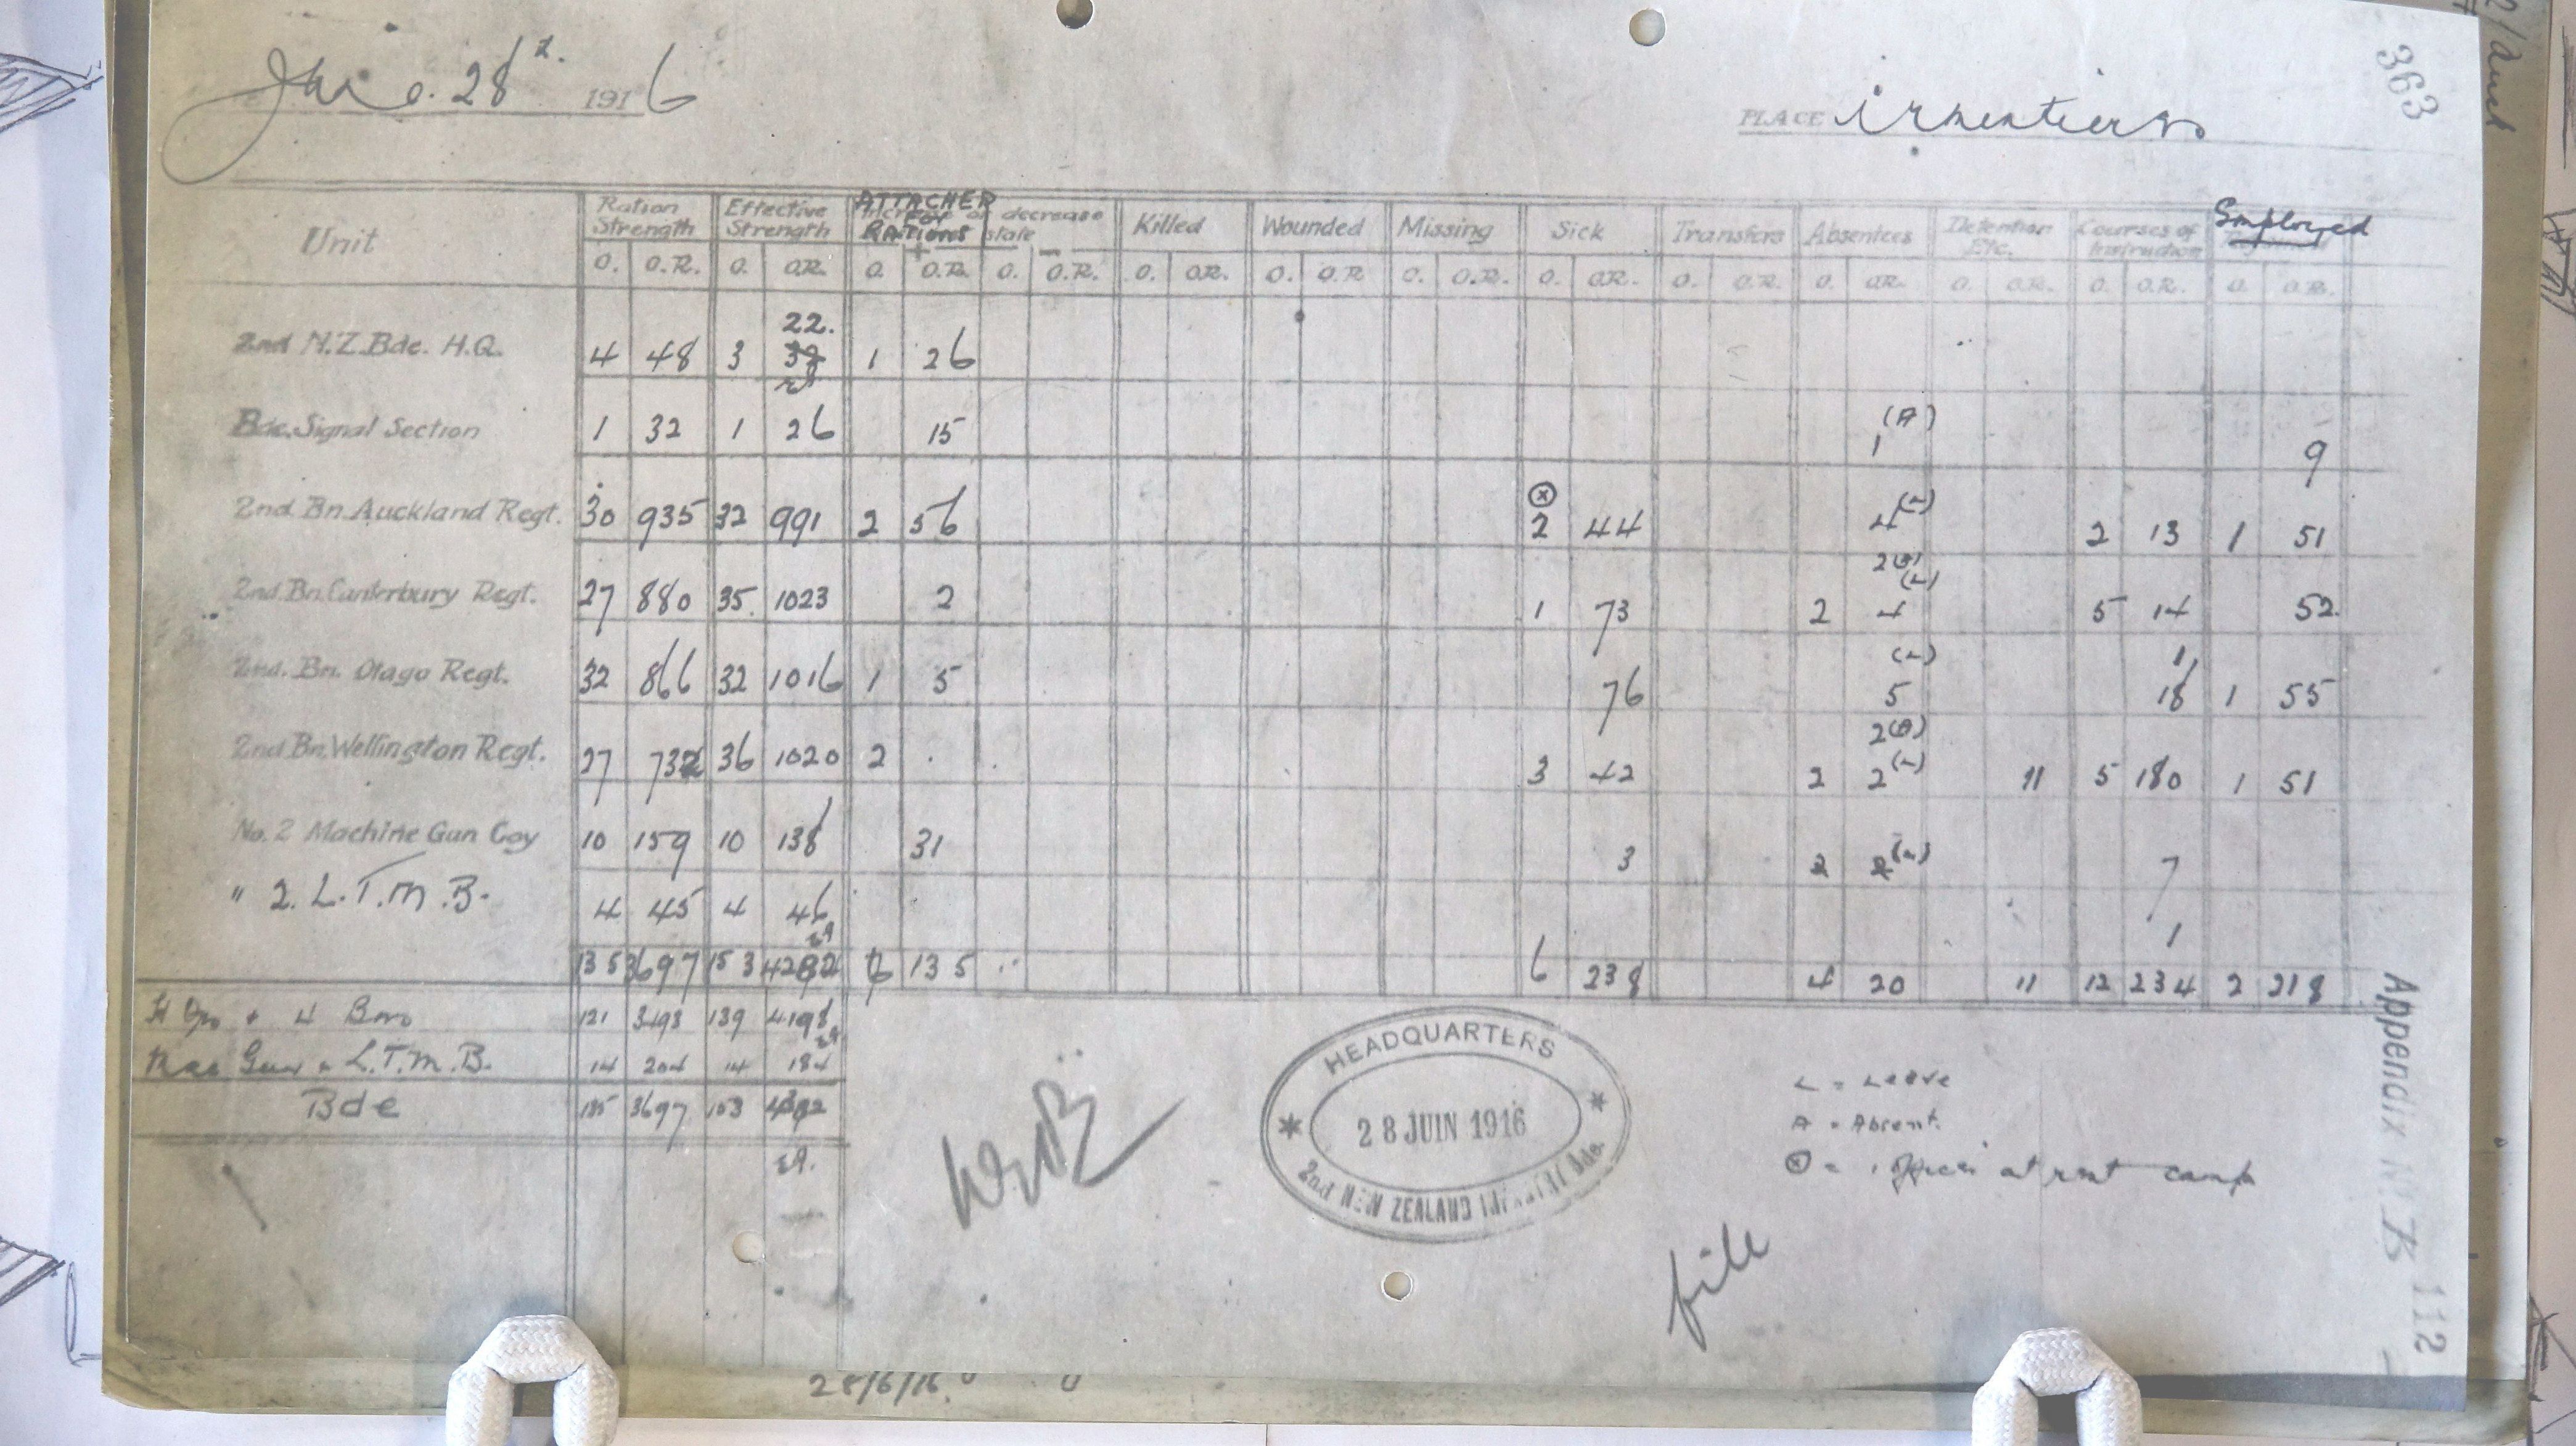 June 28th. 1916
PLACE Armentiers
363
Unit Ration Strength Effective Strength ATTACHED FOR RATIONS Increase or decrease state Killed Wounded Missing Sick Transfers Absentees Detention Etc. Courses of Instruction Employed
+ -
O. O.R. O. O.R. O. O.R. O. O.R. O. O.R. O. O.R. O. O.R. O. O.R. O. O.R. O. O.R. O. O.R. O. O.R. O. O.R.
22.
2nd N.Z. Bde. H.Q. 4 48 3 38 1 26
(A)
Bde. Signal Section 1 32 1 26 15 1 9
2nd Bn. Auckland Regt. 30 935 32 991 2 56 ⓧ 2 44 4 (L) 2 13 1 51
2nd Bn. Canterbury Regt. 27 880 35 1023 2 1 73 2 2(A) 4 (L) 5 14 52
2nd. Bn. Otago Regt. 32 866 32 1016 1 5 76 5 (L) 1 18 1 55
2nd Bn. Wellington Regt. 27 732 36 1020 2 3 42 2 2(A) 2 (L) 11 5 180 1 51
No. 2 Machine Gun Coy 10 159 10 138 31 3 2 2 (L) 7
" 2. L.T.M.B. 4 45 4 46 1
135 3697 153 4282 6 135 6 238 4 20 11 12 234 2 218
H Qrs + 4 Bns 121 3493 139 4198
Mac Gun + L.T.M.B. 14 204 14 184
Bde 135 3697 153 4382
HEADQUARTERS
28 JUIN 1916
2nd NEW ZEALAND INFANTRY Bde.
L = Leave
A = Absent.
ⓧ = 1 officer at rest camp
file
Appendix No B 112
28/6/16